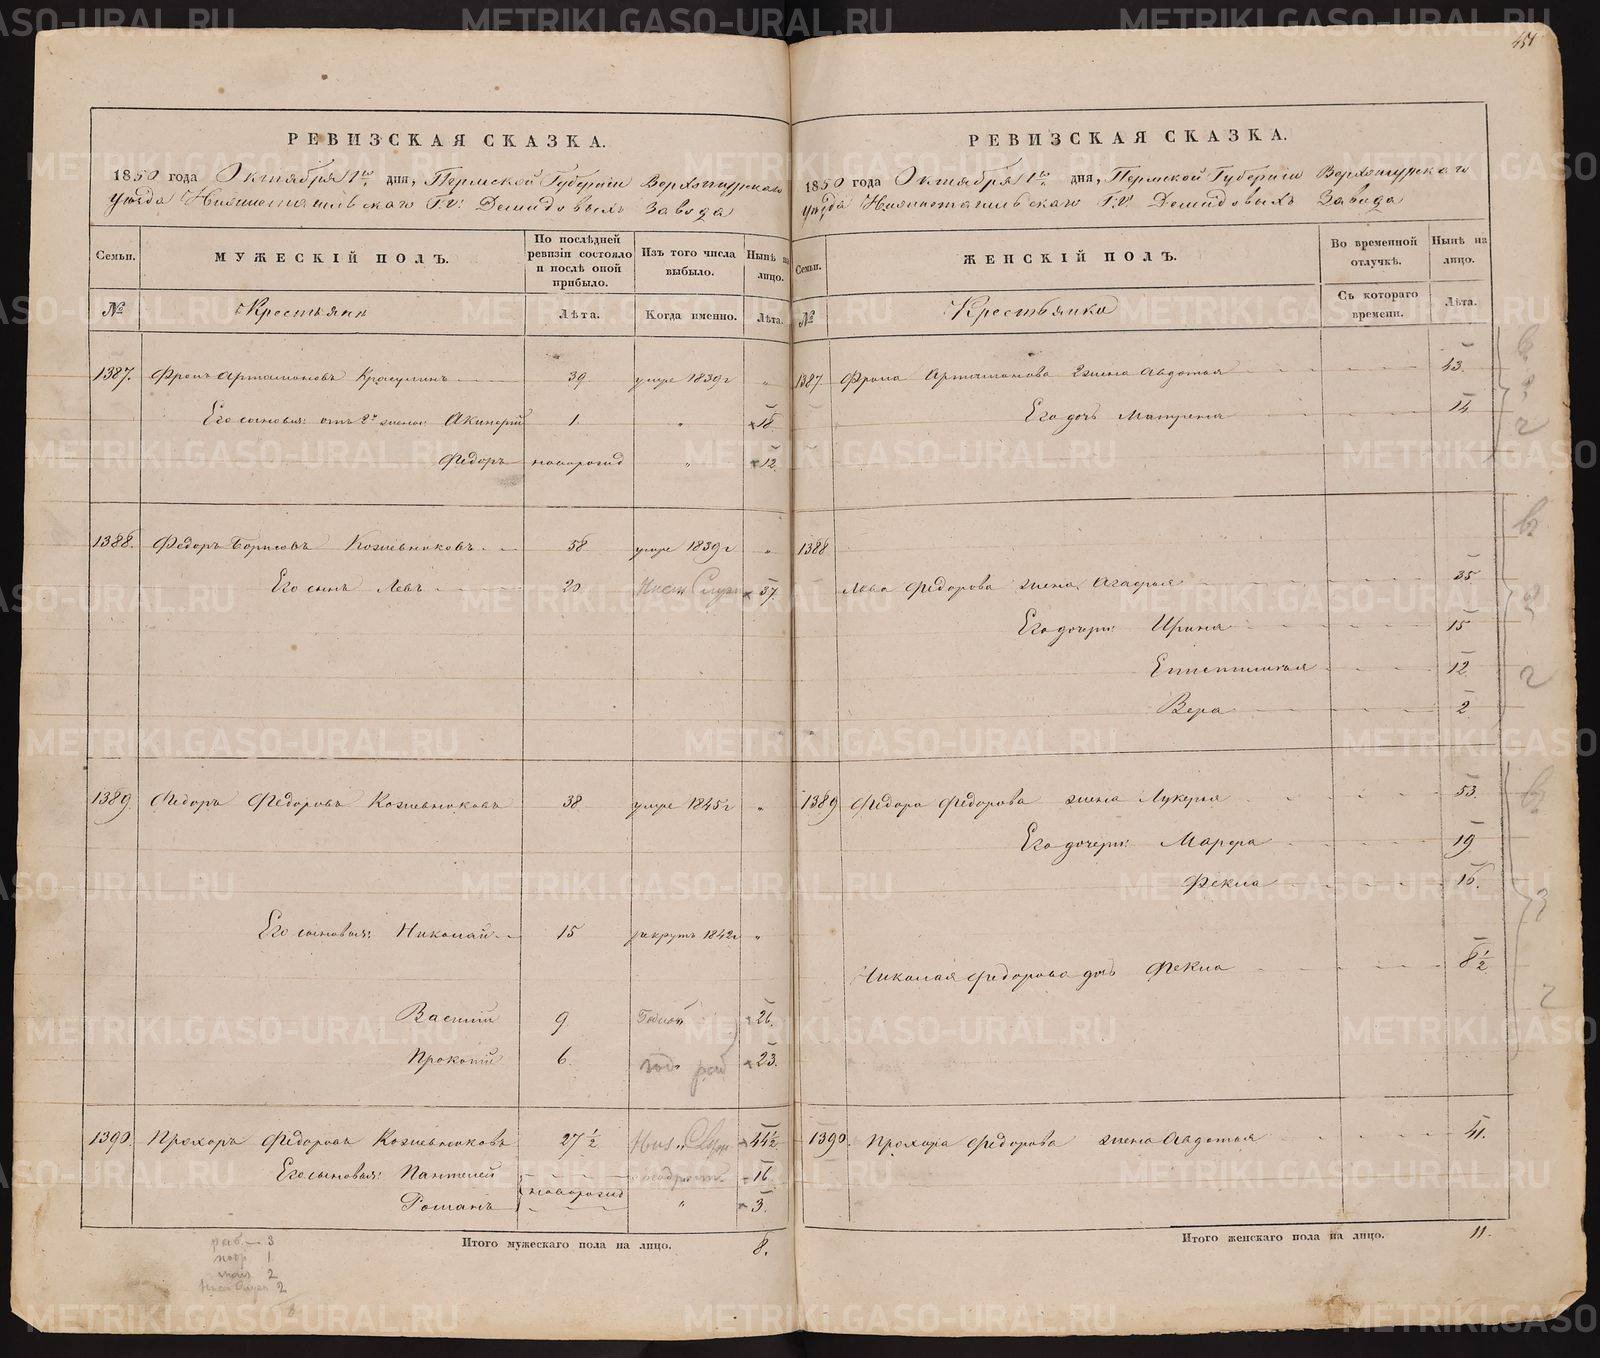 451
РЕВИЗСКАЯ СКАЗКА.
1850 года Октября 1го дня, Пермской Губернiи Верхотурскаго
уѣзда Нижнетагильскаго Г.г. Демидовыхъ Завода
Семьи. МУЖЕСКІЙ ПОЛЪ. По послѣдней ревизіи состояло и послѣ оной прибыло. Изъ того числа выбыло. Нынѣ на лицо.
№ Крестьяне Лѣта. Когда именно. Лѣта.
1387. Фролъ Артамоновъ 39 умре 1839 г "
Его сыновья: отъ 2й жены: Акинфiй 1 " 18
Федоръ новорожд " 12
1388. Федоръ Борисовъ Кожевниковъ 58 умре 1839 г "
Его сынъ Левъ 20 37
1389. Федоръ Федоровъ Кожевниковъ 38 умре 1845 г "
Его сыновья: Николай 15 рекрутъ 1842 г "
Василiй 9 26
Прокопiй 6 23
1390. Прохоръ Федоровъ Кожевниковъ 27 1/2 44 1/2
Его сыновья: Пантелей новорожд 16
Романъ " 3
Итого мужескаго пола на лицо. 8.
раб. 3
1
2
2
РЕВИЗСКАЯ СКАЗКА.
1850 года Октября 1го дня, Пермской Губернiи Верхотурскаго
уѣзда Нижнетагильскаго Г.г. Демидовыхъ Завода
Семьи. ЖЕНСКІЙ ПОЛЪ. Во временной отлучкѣ. Нынѣ на лицо.
№ Крестьянки Съ котораго времени. Лѣта.
1387 Фрола Артамонова 2 жена Авдотья 43
Его дочь Матрена 14
1388
Льва Федорова жена Агафья 35
Его дочери: Ирина 15
Епистимья 12
Вера 2
1389 Федора Федорова жена Лукерья 53
Его дочери: Марфа 19
Фекла 16
Николая Федорова дочь Фекла 8 1/2
1390. Прохора Федорова жена Авдотья 41.
Итого женскаго пола на лицо. 11.
METRIKI.GASO-URAL.RU